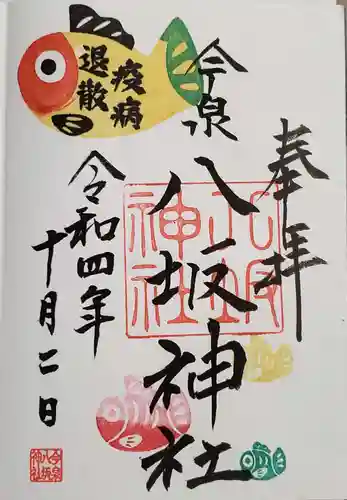 奉拝
今泉
八坂神社
八坂
神社
令和四年
十月二日
疫病
退散
今泉
八坂
神社